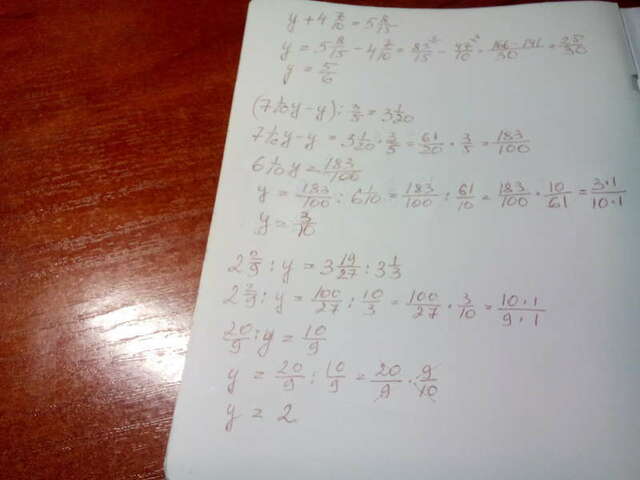 y + 4 7/10 = 5 8/15
y = 5 8/15 - 4 7/10 = 83/15 - 47/10 = 166 - 141/30 = 25/30
y = 5/6
(7 1/10 y - y) : 3/5 = 3 1/20
7 1/10 y - y = 3 1/20 · 3/5 = 61/20 · 3/5 = 183/100
6 1/10 y = 183/100
y = 183/100 : 6 1/10 = 183/100 : 61/10 = 183/100 · 10/61 = 3·1/10·1
y = 3/10
2 2/9 : y = 3 19/27 : 3 1/3
2 2/9 : y = 100/27 : 10/3 = 100/27 · 3/10 = 10·1/9·1
20/9 : y = 10/9
y = 20/9 : 10/9 = 20/9 · 9/10
y = 2